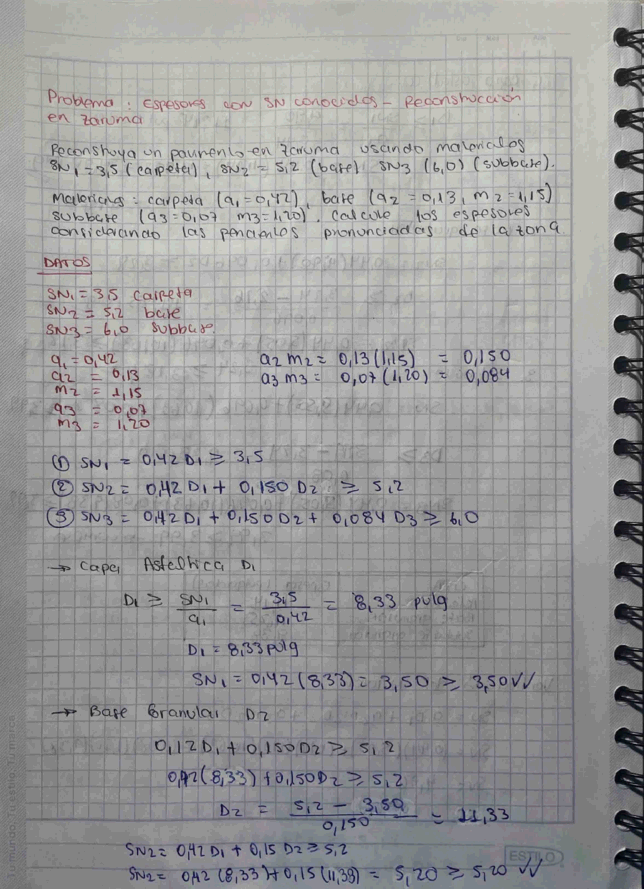 Problema: Espesores con SN conocidos - Reconstrucción
en Zaruma
Reconstruya un pavimento en Zaruma usando materiales
SN1 = 3,5 (carpeta), SN2 = 5,2 (base) SN3 (6,0) (subbase).
Materiales: carpeta (a1 = 0,42), base (a2 = 0,13, m2 = 1,15)
subbase (a3 = 0,07 m3 = 1,20). calcule los espesores
considerando las pendientes pronunciadas de la zona
DATOS
SN1 = 3,5 carpeta
SN2 = 5,2 base
SN3 = 6,0 subbase
a1 = 0,42 a2 m2 = 0,13 (1,15) = 0,150
a2 = 0,13 a3 m3 = 0,07 (1,20) = 0,084
m2 = 1,15
a3 = 0,07
m3 = 1,20
① SN1 = 0,42 D1 ≥ 3,5
② SN2 = 0,42 D1 + 0,150 D2 ≥ 5,2
③ SN3 = 0,42 D1 + 0,150 D2 + 0,084 D3 ≥ 6,0
→ Capa Asfaltica D1
D1 ≥ SN1/a1 = 3,5/0,42 = 8,33 pulg
D1 = 8,33 pulg
SN1 = 0,42 (8,33) = 3,50 ≥ 3,50 √√
→ Base Granular D2
0,12 D1 + 0,150 D2 ≥ 5,2
0,42 (8,33) + 0,150 D2 ≥ 5,2
D2 = 5,2 - 3,50/0,150 = 11,33
SN2 = 0,42 D1 + 0,15 D2 ≥ 5,2
SN2 = 0,42 (8,33) + 0,15 (11,33) = 5,20 ≥ 5,20 √√
ESTILO
Tu mundo, Tu estilo, Tu marca